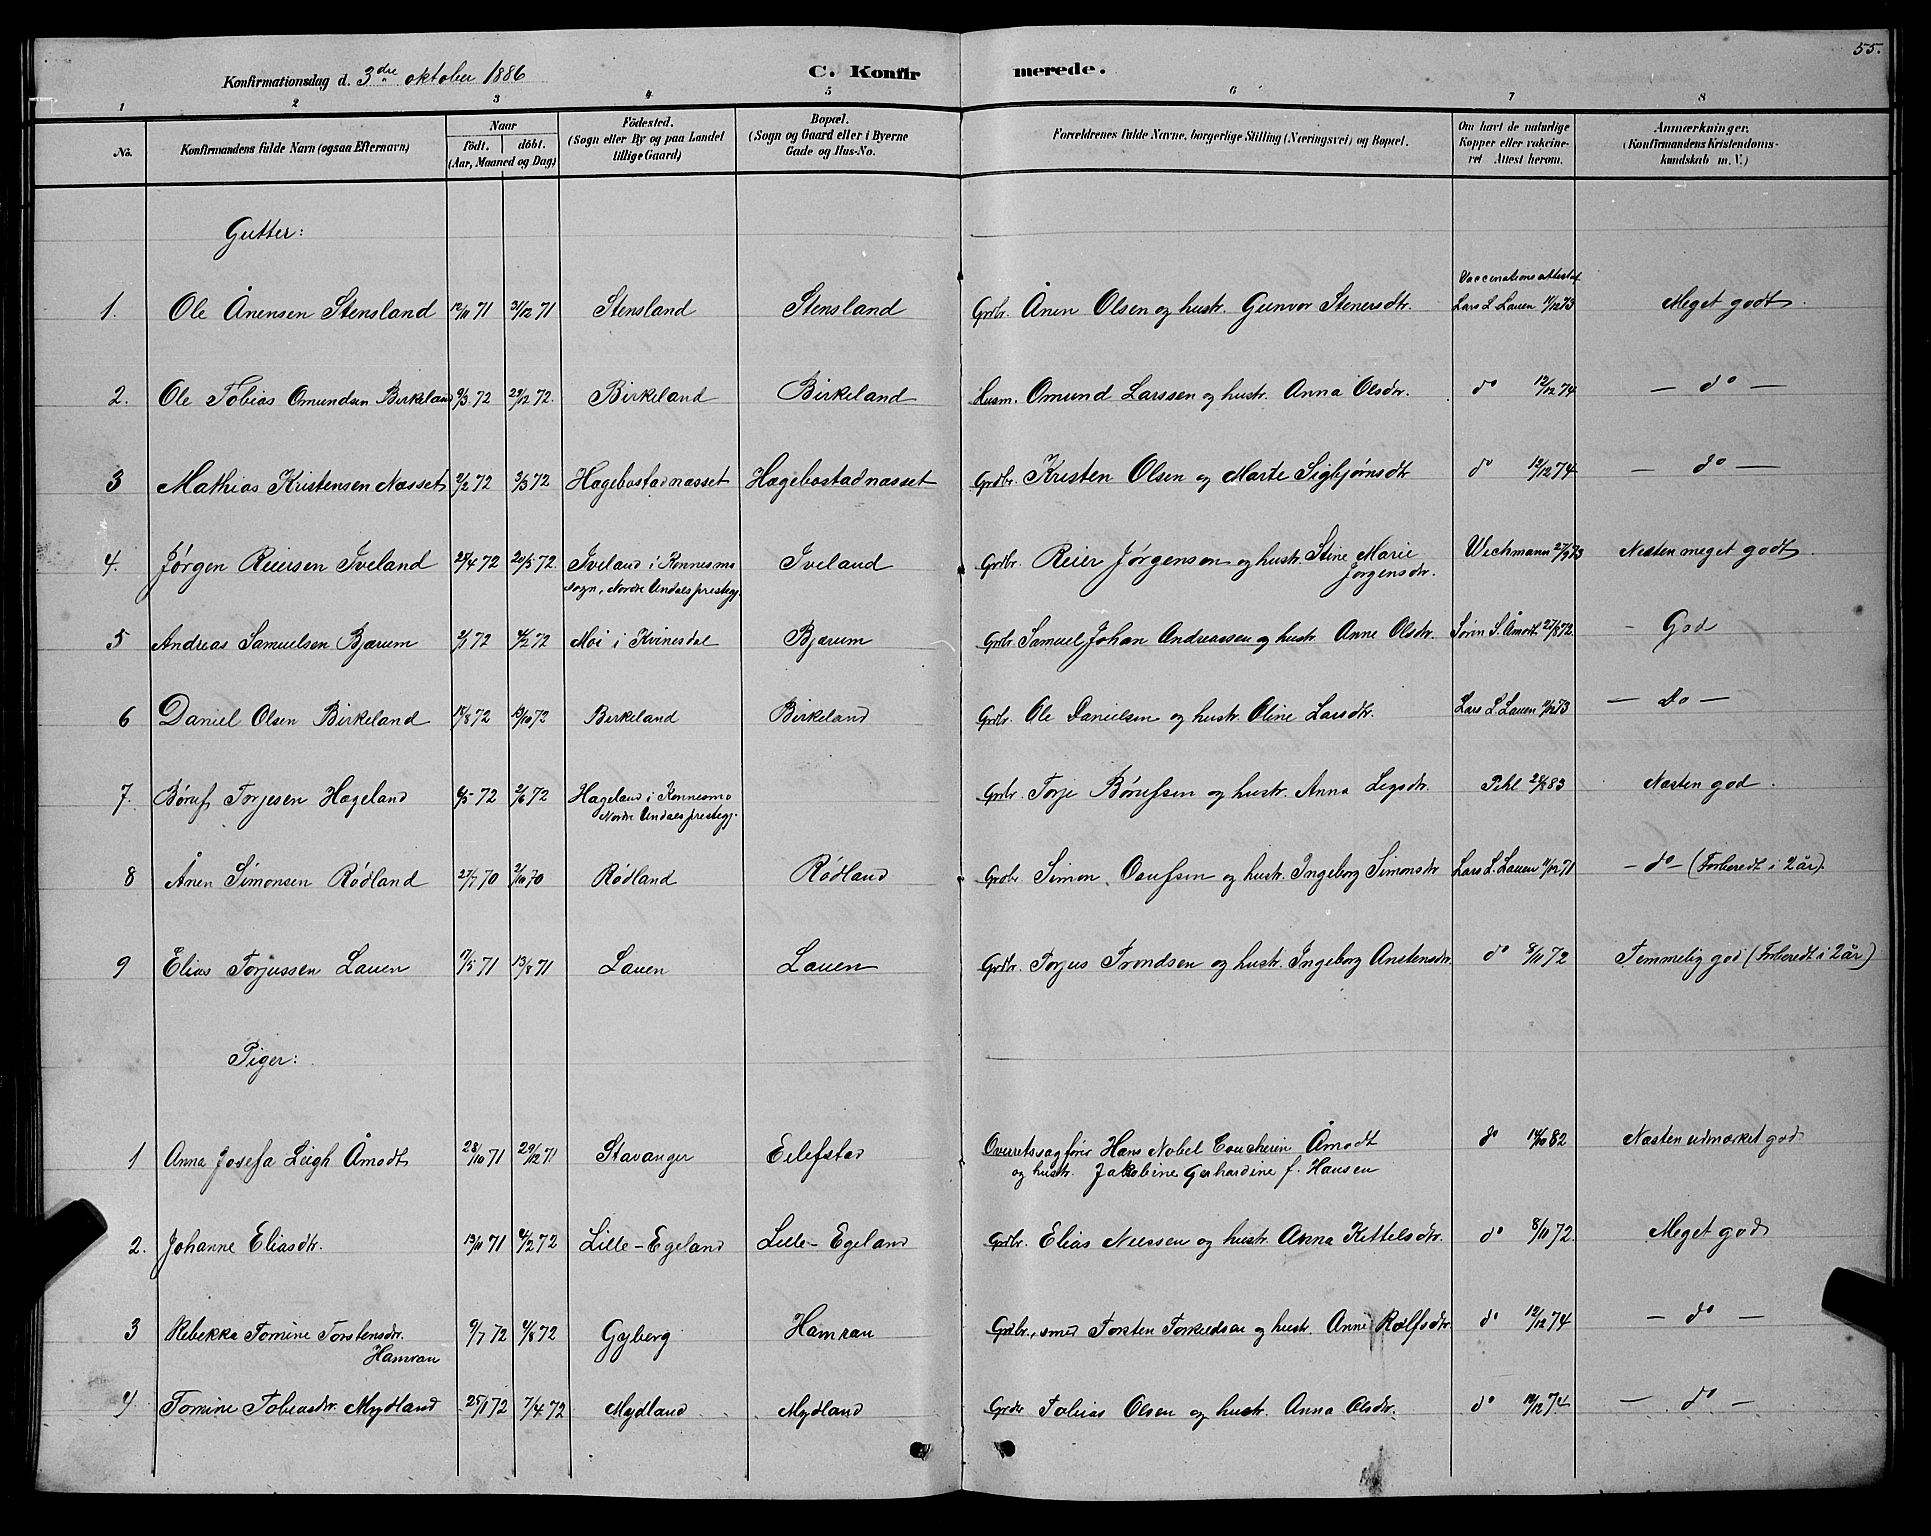 55.
Konfirmationsdag d. 3dre oktober 1886 C. Konfirmerede.
1 2 3 4 5 6 7 8
No. Konfirmandens fulde Navn (ogsaa Efternavn) Naar födt. döbt. (Aar, Maaned og Dag) Födested. (Sogn eller By og paa Landet tillige Gaard) Bopæl. (Sogn og Gaard eller i Byerne Gade og Hus-No. Forældrenes fulde Navne, borgerlige Stilling (Næringsvei) og Bopæl. Om havt de naturlige Kopper eller vakcineret Attest herom. Anmærkninger. (Konfirmandens Kristendomskundskab m. V.)
Gutter:
Vaccinationsattest af
1. Ole Ånensen Stensland 12/11 71 31/12 71 Stensland Stensland Grdbr. Ånen Olsen og hustr. Gunvor Stenersdtr. Lars L. Lauen 11/12 73 Meget godt.
2. Ole Tobias Omundsen Birkeland 9/3 72 72 Birkeland Birkeland Husm. Omund Larssen og hustr. Anna Olsdtr. do 12/12 74 — do —
3 Mathias Kristensen Næsset 2/2 72 3/3 72 Hægebostadnæsset Hægebostadnæsset Grdbr. Kristen Olsen og Marte Sigbjørnsdtr do 12/12 74 — do —
4. Jørgen Reiersen Iveland 28/4 72 20/5 72 Iveland i Konnesmo Sogn, Nordre Undals prestegj. Iveland Grdbr. Reier Jørgensen og hustr. Stine Marie Jørgensdtr. Wichmann 27/9 73 Næsten meget godt.
5 Andreas Samuelsen Bjærum 2/1 72 4/2 72 Moi i Kvinesdal Bjærum Grdbr. Samuel Johan Andreassen og hustr. Anne Olsdtr. Sörin S. Åmodt 21/8 72. — God
6 Daniel Olsen Birkeland 18/8 72 13/10 72 Birkeland Birkeland Grdbr. Ole Danielsen og hustr. Oline Larsdtr. Lars L. Lauen 11/12 73 — do —
7. Børuf Torjesen Hægeland 6/5 72 2/6 72 Hægeland i Konnesmo Nordre Undals prestegj. Grdbr. Torje Børufsen og hustr. Anna Legsdtr. Pihl 83 Næsten god.
8 Ånen Simonsen Rödland 27/7 70 2/10 70 Rödland Rödland Grdbr. Simon Ooufsen og hustr. Ingeborg Simonsdtr Lars L. Lauen 11/10 71 — do — (Forberedt i 2 år).
9 Elias Torjussen Lauen 17/5 71 13/8 71 Lauen Lauen Grdbr. Torjus Trondsen og hustr. Ingeborg Anstensdtr. do 8/10 72 Temmelig god (Forberedt i 2 år)
Piger:
1 Anna Josefa Leigh Åmodt 28/10 71 29/12 71 Stavanger Eilefstad Overretssagfører Hans Nobel Coucheron Åmodt og hustr. Jakobine Gerhardine f. Hansen do 14/10 82 Næsten udmærket god
2. Johanne Eliasdtr. 13/11 71 4/2 72 Lille-Egeland Lille-Egeland Grdbr. Elias Nilssen og hustr. Anna Kittelsdtr. do 8/10 72. Meget god
3 Rebekka Tomine Torstensdtr. Hamran 9/7 72 4/8 72 Gyberg Hamran Grdbr., smed Torsten Torkildsen og hustr. Anne Rolfsdtr. do 12/12 74 — do —
4 Tomine Tobiasdtr. Mydland 25/1 72 7/4 72 Mydland Mydland Grdbr. Tobias Olsen og hustr. Anna Olsdtr. do 12/12 74 — do —